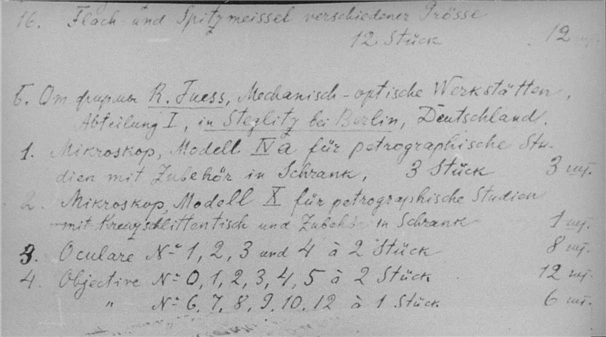 16. Flach- und Spitzmeissel verschiedener Grösse
12 Stück 12 шт.
Б. От фирмы R. Fuess, Mechanisch-optische Werkstätten,
Abteilung I, in Steglitz bei Berlin, Deutschland.
1. Mikroskop, Modell IVa für petrographische Stu-
dien mit Zubehör in Schrank, 3 Stück 3 шт.
2. Mikroskop, Modell X für petrographische Studien
mit Kreuzschlittentisch und Zubehör in Schrank 1 шт.
3. Oculare № 1, 2, 3 und 4 à 2 Stück 8 шт.
4. Objective № 0, 1, 2, 3, 4, 5 à 2 Stück 12 шт.
" № 6, 7, 8, 9, 10, 12 à 1 Stück 6 шт.